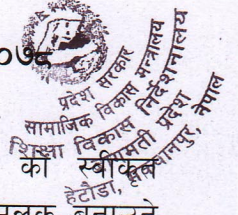 ०७८
प्रदेश सरकार
सामाजिक विकास मन्त्रालय
शिक्षा विकास निर्देशनालय
बागमती प्रदेश
हेटौडा, मकवानपुर, नेपाल
को स्वीकृत